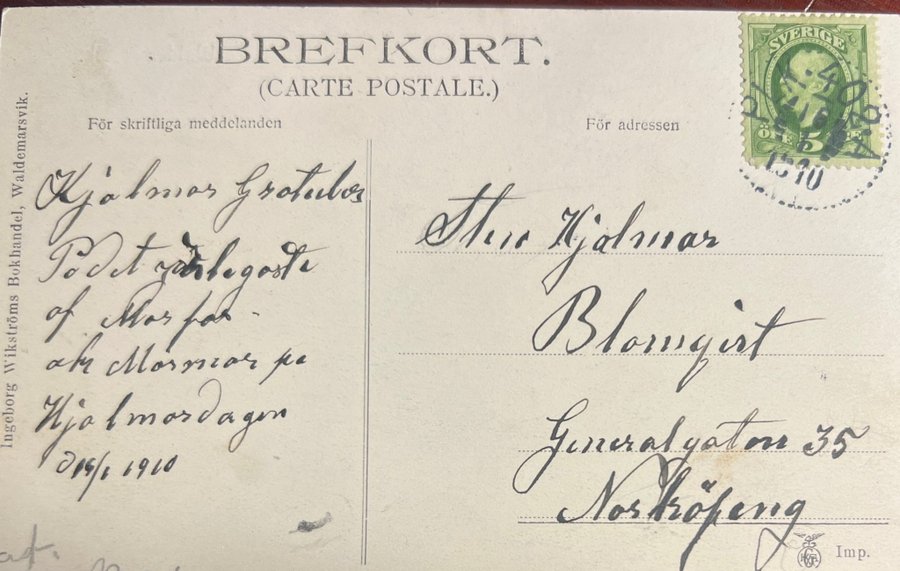 BREFKORT.
(CARTE POSTALE.)
För skriftliga meddelanden
För adressen
SVERIGE
5
1910
Ingeborg Wikströms Bokhandel, Waldemarsvik.
Hjalmar Gratuleras
På det
af Morfar
och Mormor på
Hjalmardagen
1910
Sten Hjalmar
Blomqist
Generalgatan 35
Norköping
Imp.